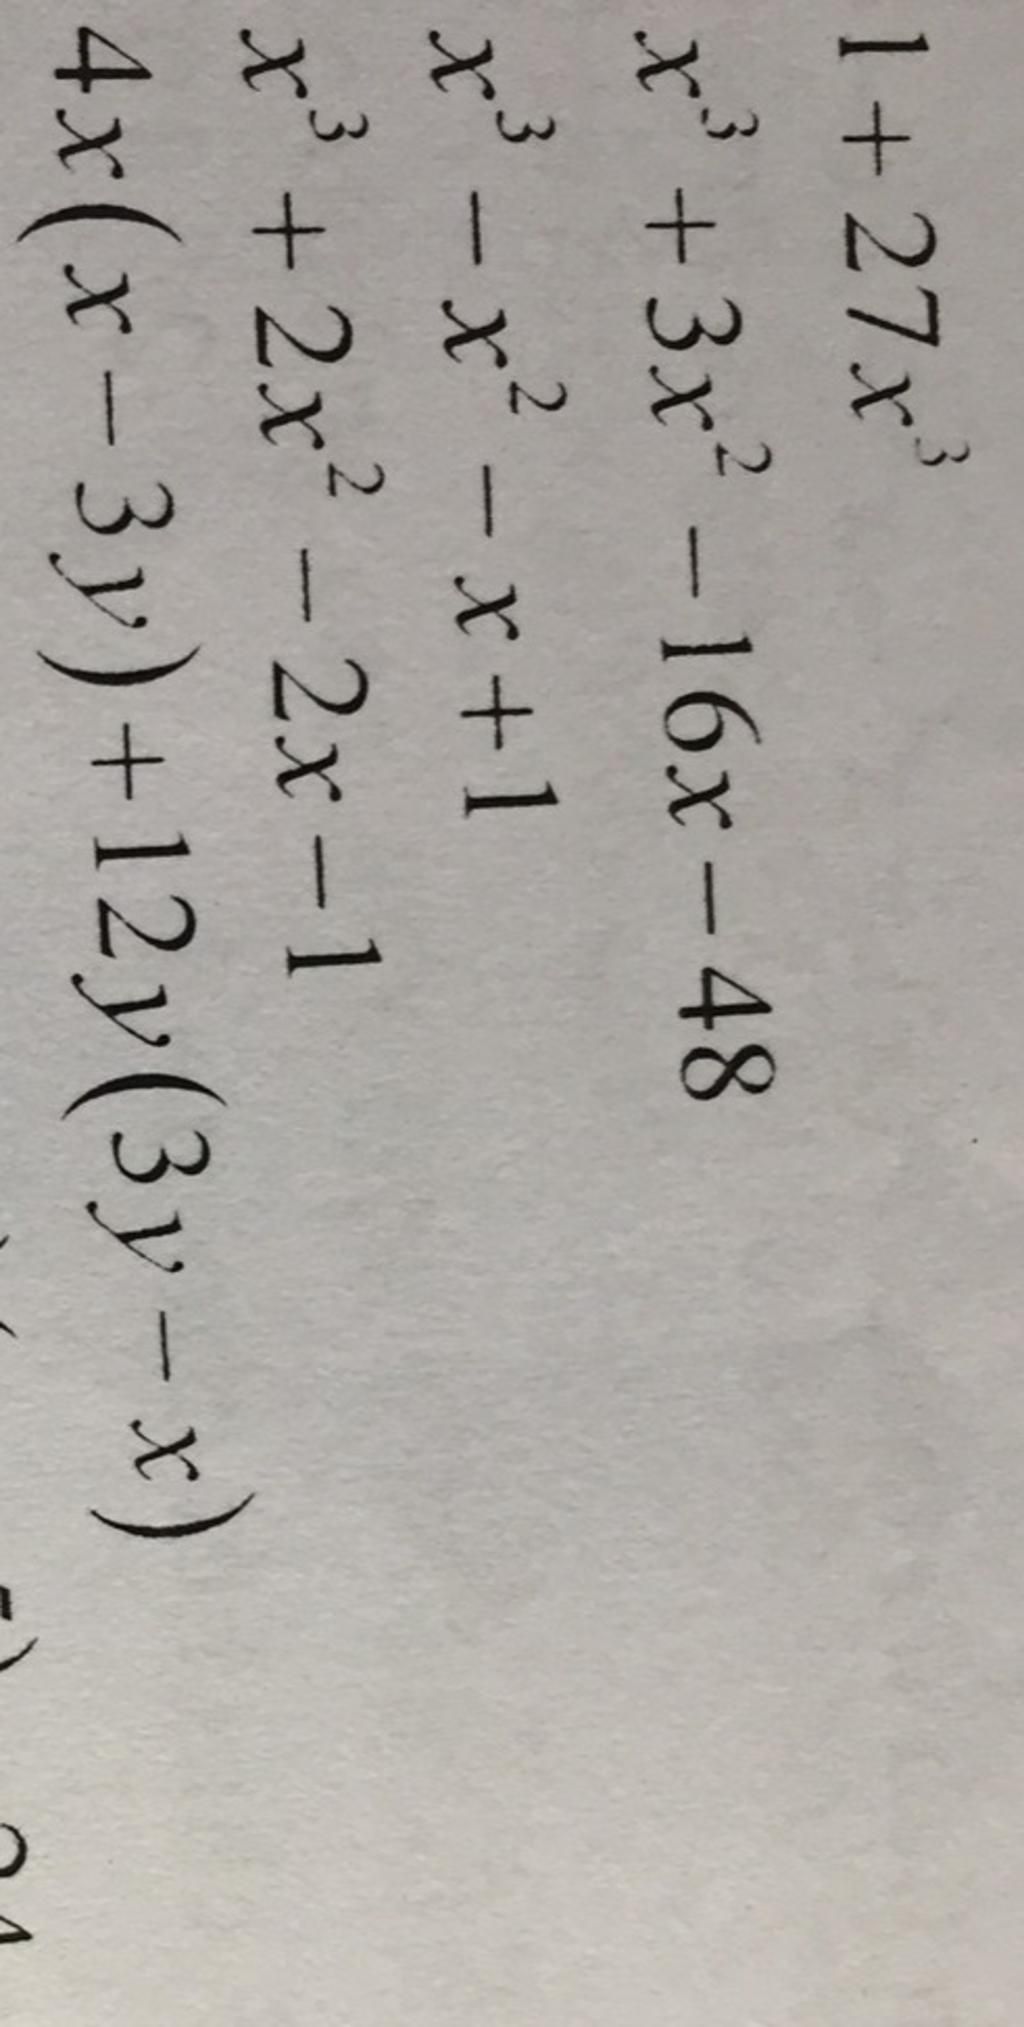 1 + 27x³
x³ + 3x² − 16x − 48
x³ − x² − x + 1
x³ + 2x² − 2x − 1
4x(x − 3y) + 12y(3y − x)